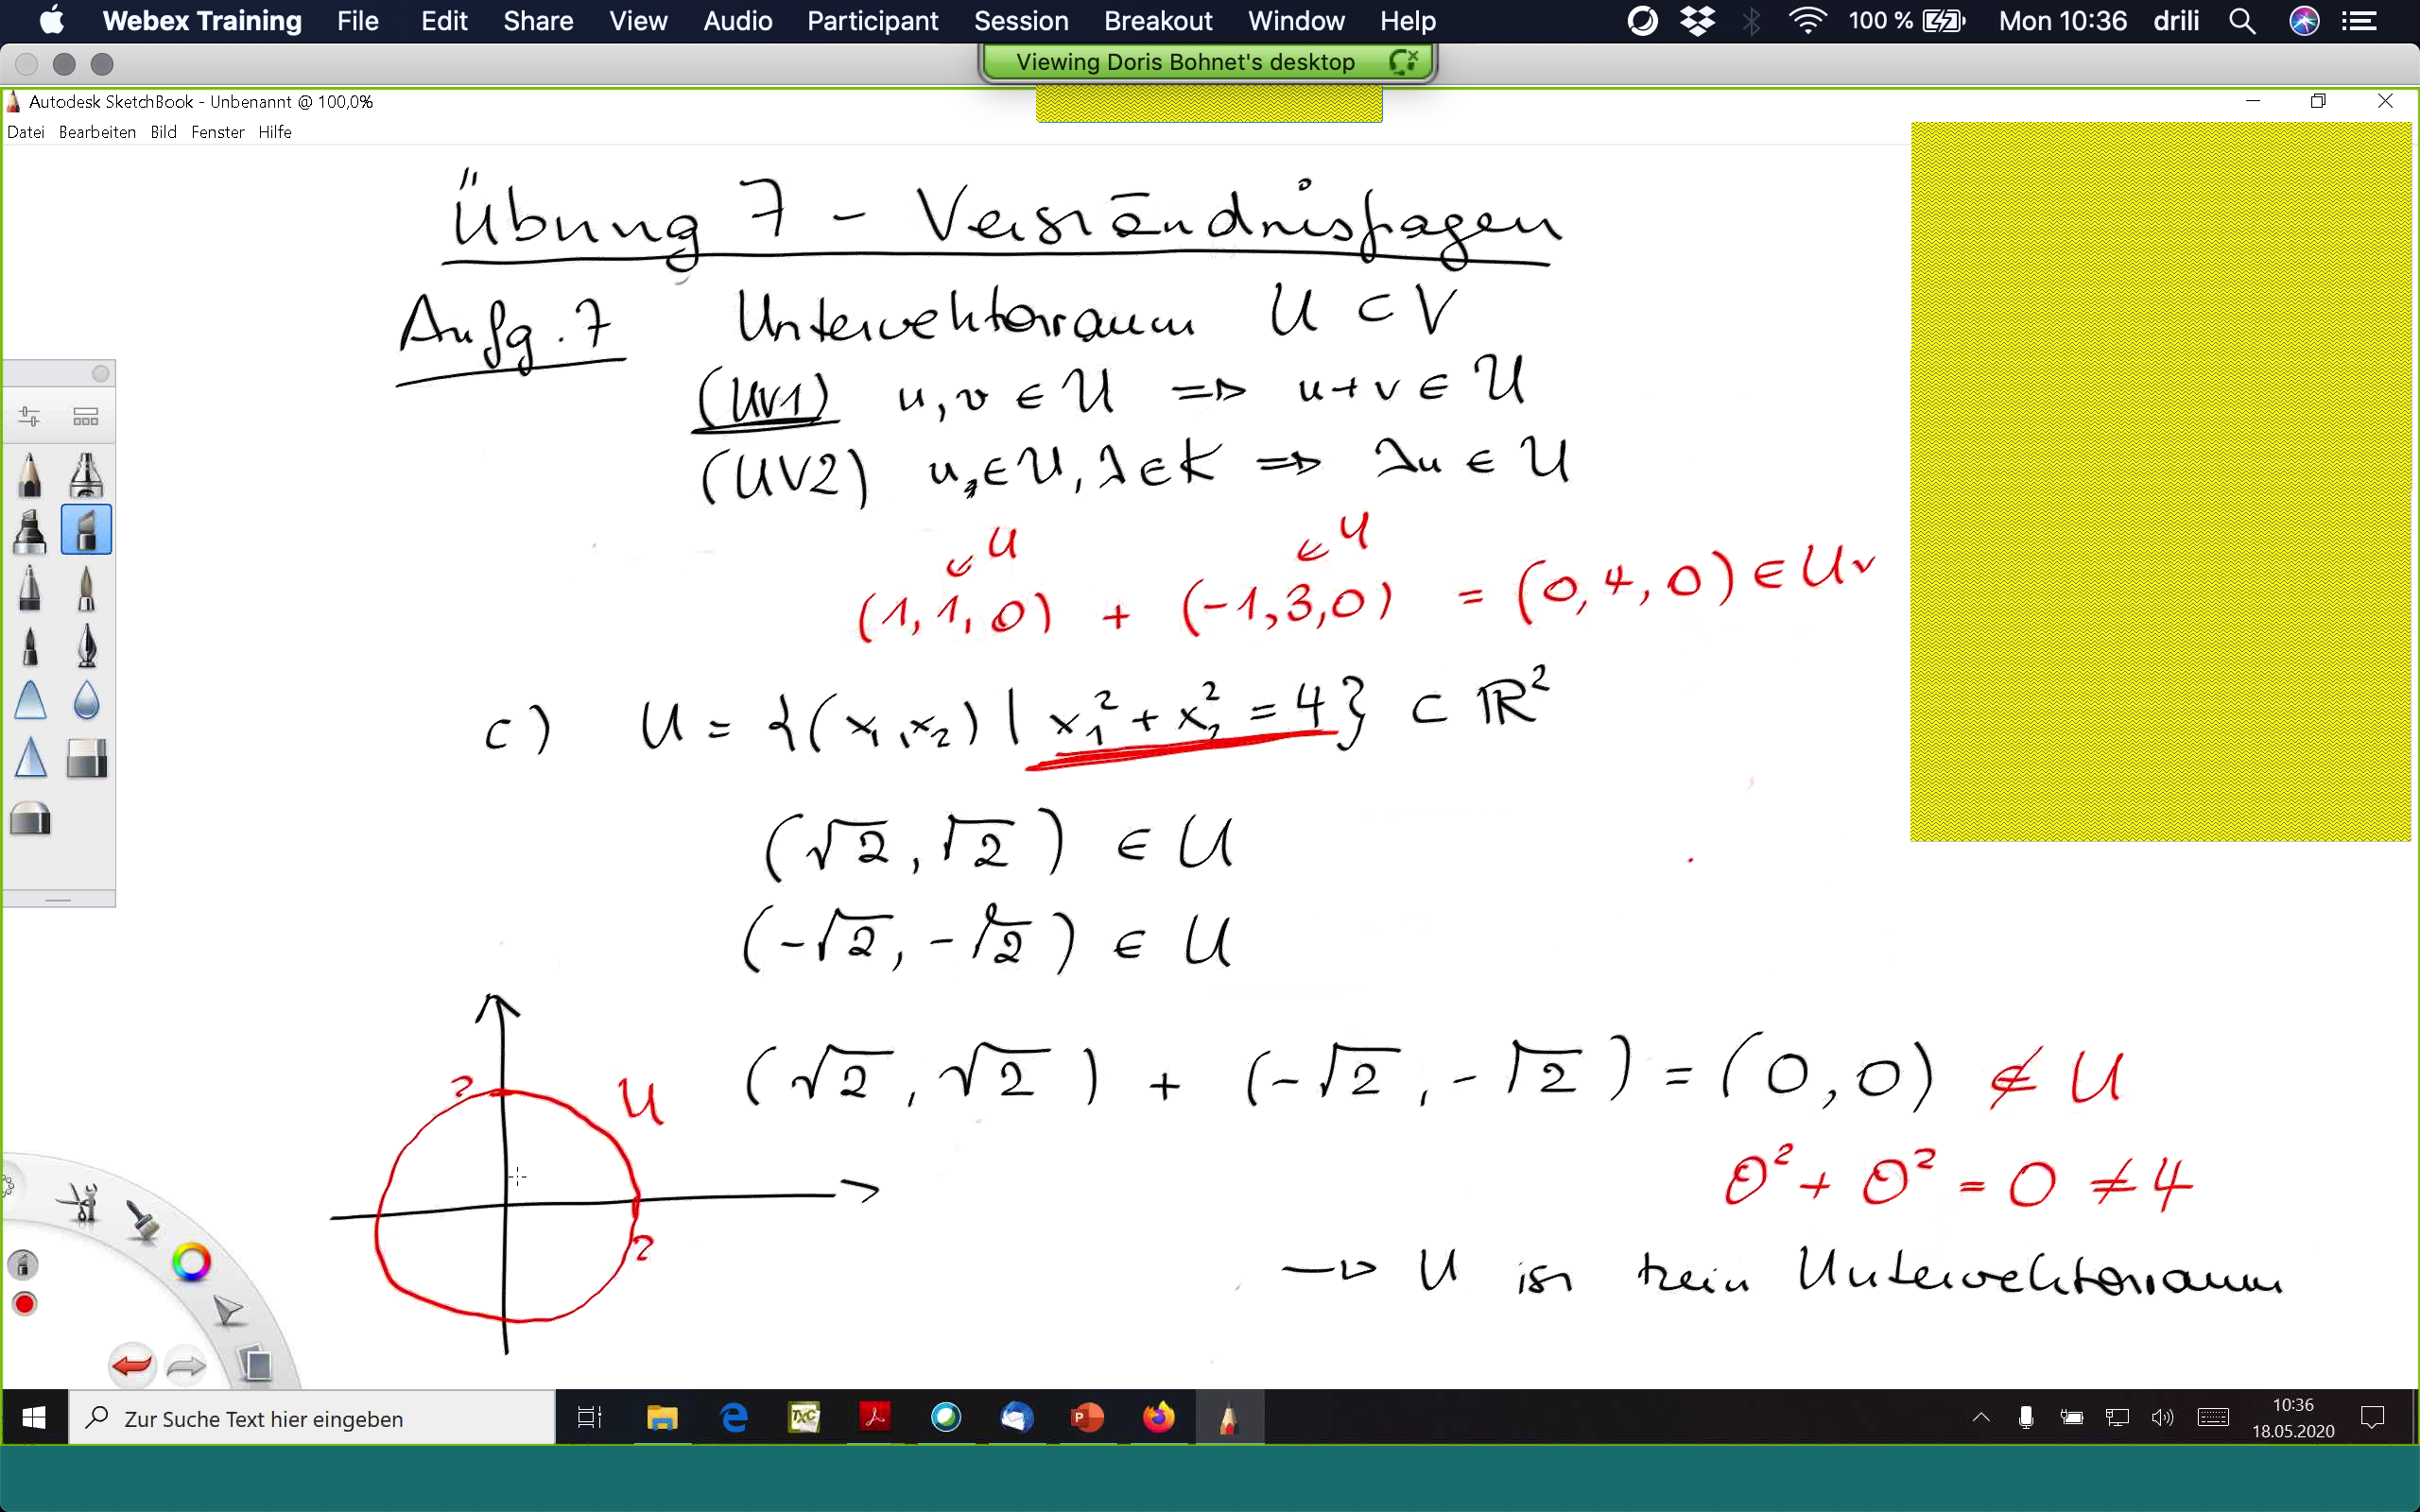 Webex Training File Edit Share View Audio Participant Session Breakout Window Help 100 % Mon 10:36 drili
Viewing Doris Bohnet's desktop
Autodesk SketchBook - Unbenannt @ 100,0%
Datei Bearbeiten Bild Fenster Hilfe
Übung 7 - Verständnisfragen
Aufg. 7 Untervektorraum U ⊂ V
(UV1) u, v ∈ U ⇒ u + v ∈ U
(UV2) u, ∈ U, λ ∈ K ⇒ λu ∈ U
∈ U ∈ U
(1, 1, 0) + (-1, 3, 0) = (0, 4, 0) ∈ U ✓
c) U = {(x₁, x₂) | x₁² + x₂² = 4} ⊂ ℝ²
(√2, √2) ∈ U
(-√2, -√2) ∈ U
(√2, √2) + (-√2, -√2) = (0, 0) ∉ U
2 U
0² + 0² = 0 ≠ 4
2
→ U ist kein Untervektorraum
Zur Suche Text hier eingeben
TXC
P
10:36
18.05.2020